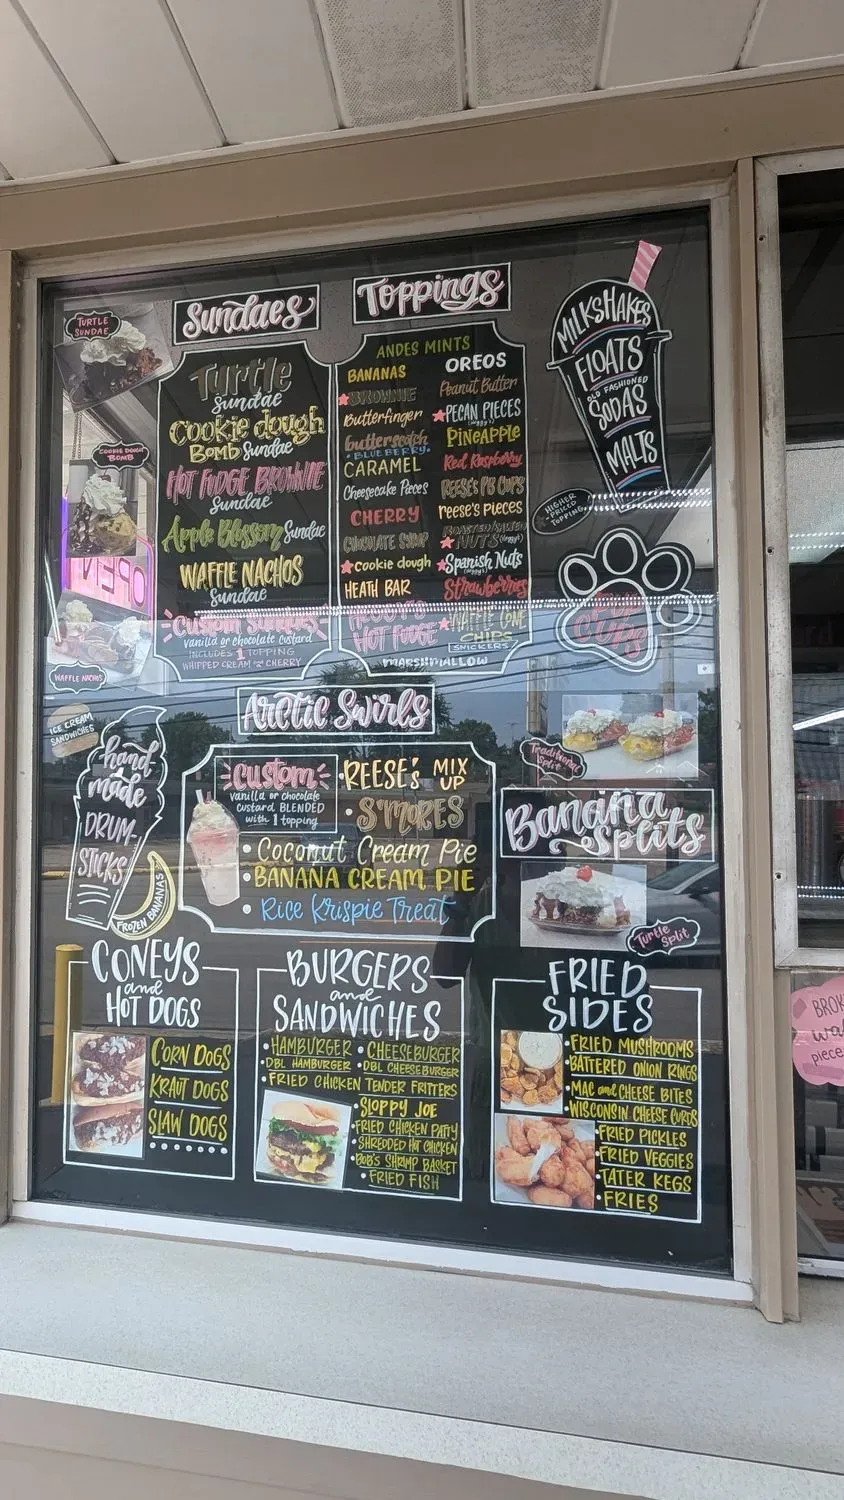 TURTLE
SUNDAE
Sundaes
Turtle
Sundae
Cookie dough
Bomb Sundae
HOT FUDGE BROWNIE
Sundae
Apple Blossom Sundae
WAFFLE NACHOS
Sundae
Custom Sundaes
vanilla or chocolate custard
INCLUDES 1 TOPPING
WHIPPED CREAM and CHERRY
COOKIE DOUGH
BOMB
OPEN
WAFFLE NACHOS
Toppings
ANDES MINTS
BANANAS
BROWNIE
Butterfinger
butterscotch
BLUEBERRY
CARAMEL
Cheesecake Pieces
CHERRY
CHOCOLATE SYRUP
cookie dough
HEATH BAR
HOT FUDGE
OREOS
Peanut Butter
PECAN PIECES
PINEAPPLE
Red Raspberry
REESE'S PB CUPS
reese's pieces
NUTS
Spanish Nuts
Strawberries
WAFFLE CONE
CHIPS
SNICKERS
MARSHMALLOW
MILKSHAKES
FLOATS
OLD FASHIONED
SODAS
MALTS
HIGHER
PRICED
TOPPING
PUP
CUPS
ICE CREAM
SANDWICHES
hand
made
DRUM-
STICKS
FROZEN BANANAS
Arctic Swirls
Custom
vanilla or chocolate
custard BLENDED
with 1 topping
• REESE'S MIX
UP
• S'MORES
• Coconut Cream Pie
• BANANA CREAM PIE
• Rice Krispie Treat
Traditional
Split
Banana
Splits
Turtle
Split
CONEYS
and
HOT DOGS
CORN DOGS
KRAUT DOGS
SLAW DOGS
BURGERS
and
SANDWICHES
• HAMBURGER • CHEESEBURGER
• DBL HAMBURGER • DBL CHEESEBURGER
• FRIED CHICKEN TENDER FRITTERS
• SLOPPY JOE
• FRIED CHICKEN PATTY
• SHREDDED HOT CHICKEN
• BOB'S SHRIMP BASKET
• FRIED FISH
FRIED
SIDES
• FRIED MUSHROOMS
• BATTERED ONION RINGS
• MAC and CHEESE BITES
• WISCONSIN CHEESE CURDS
• FRIED PICKLES
• FRIED VEGGIES
• TATER KEGS
• FRIES
piece